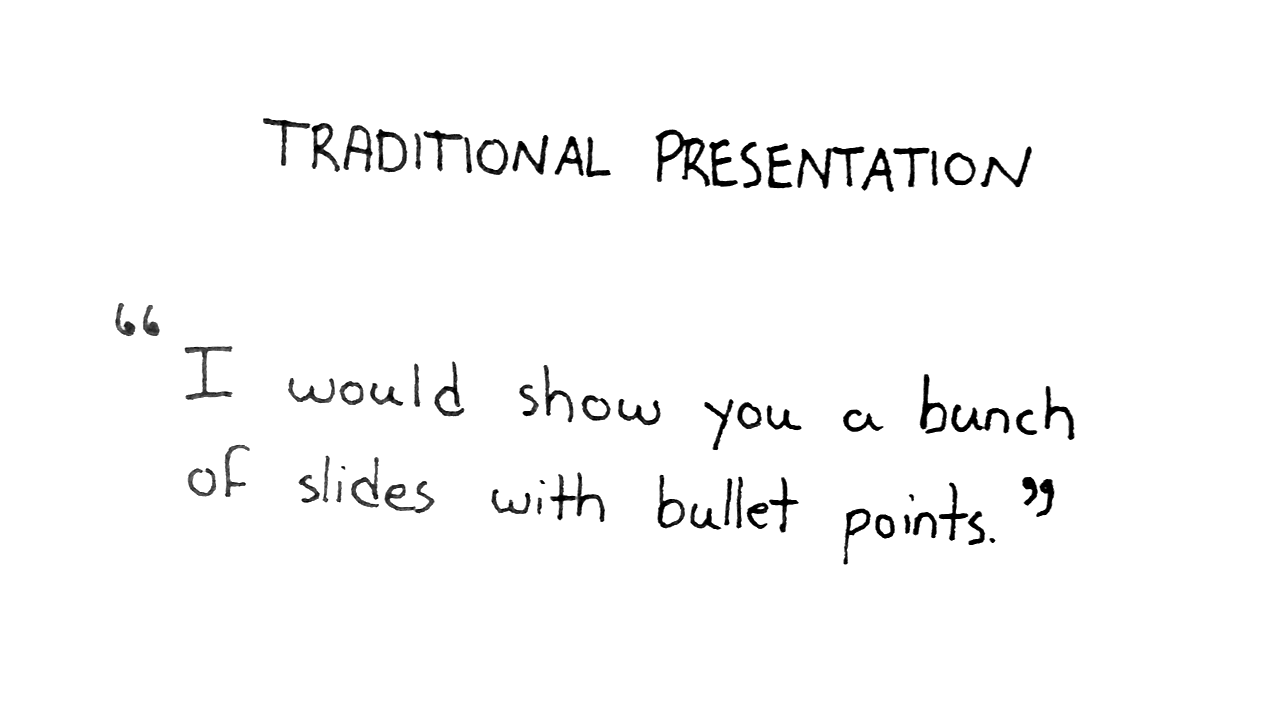 TRADITIONAL PRESENTATION
“I would show you a bunch
of slides with bullet points.”